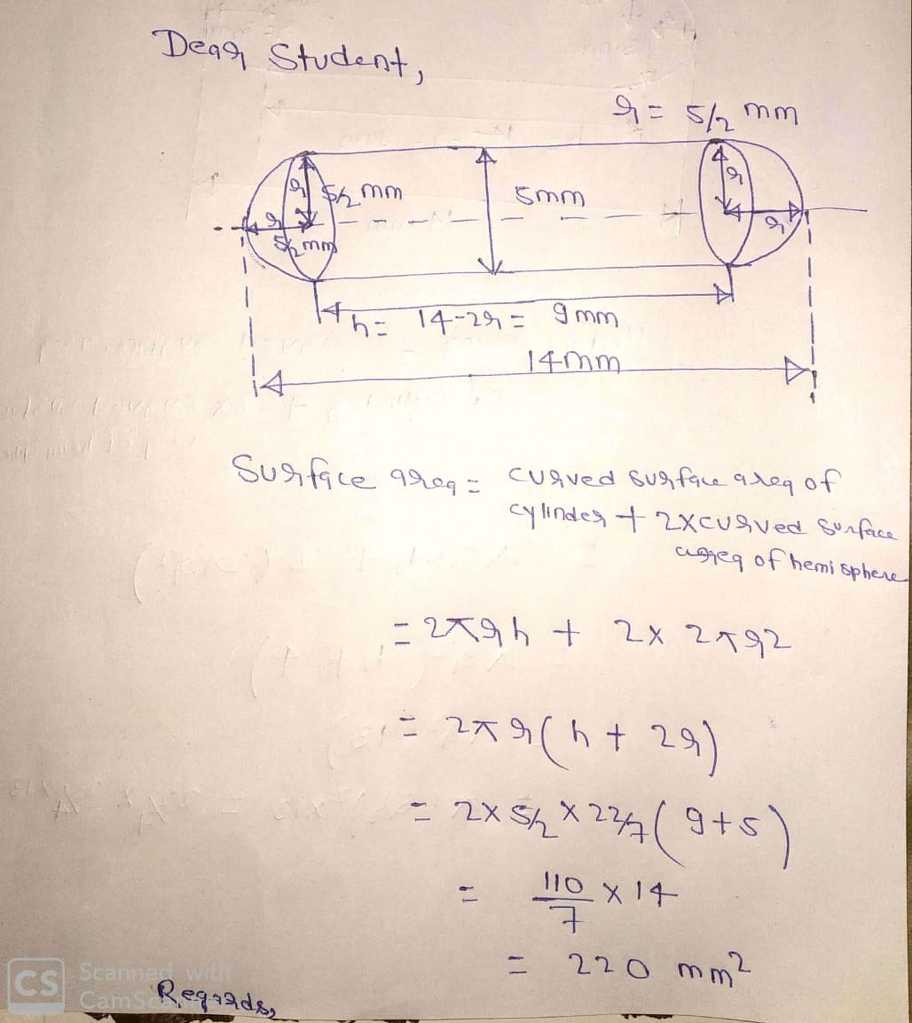 Dear Student,
r = 5/2 mm
r 5/2 mm
5mm
r
r
5/2 mm
r
h = 14-2r = 9mm
14mm
Surface area = curved surface area of
cylinder + 2xcurved surface
area of hemisphere
= 2πrh + 2x 2πr2
= 2πr(h + 2r)
= 2x 5/2 x 22/7 (9+5)
= 110/7 x 14
= 220 mm²
CS Scanned with
CamSc
Regards,